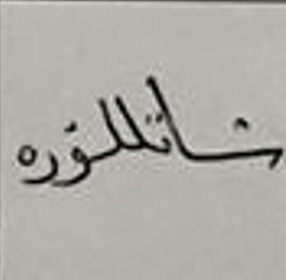 شاتللۆره